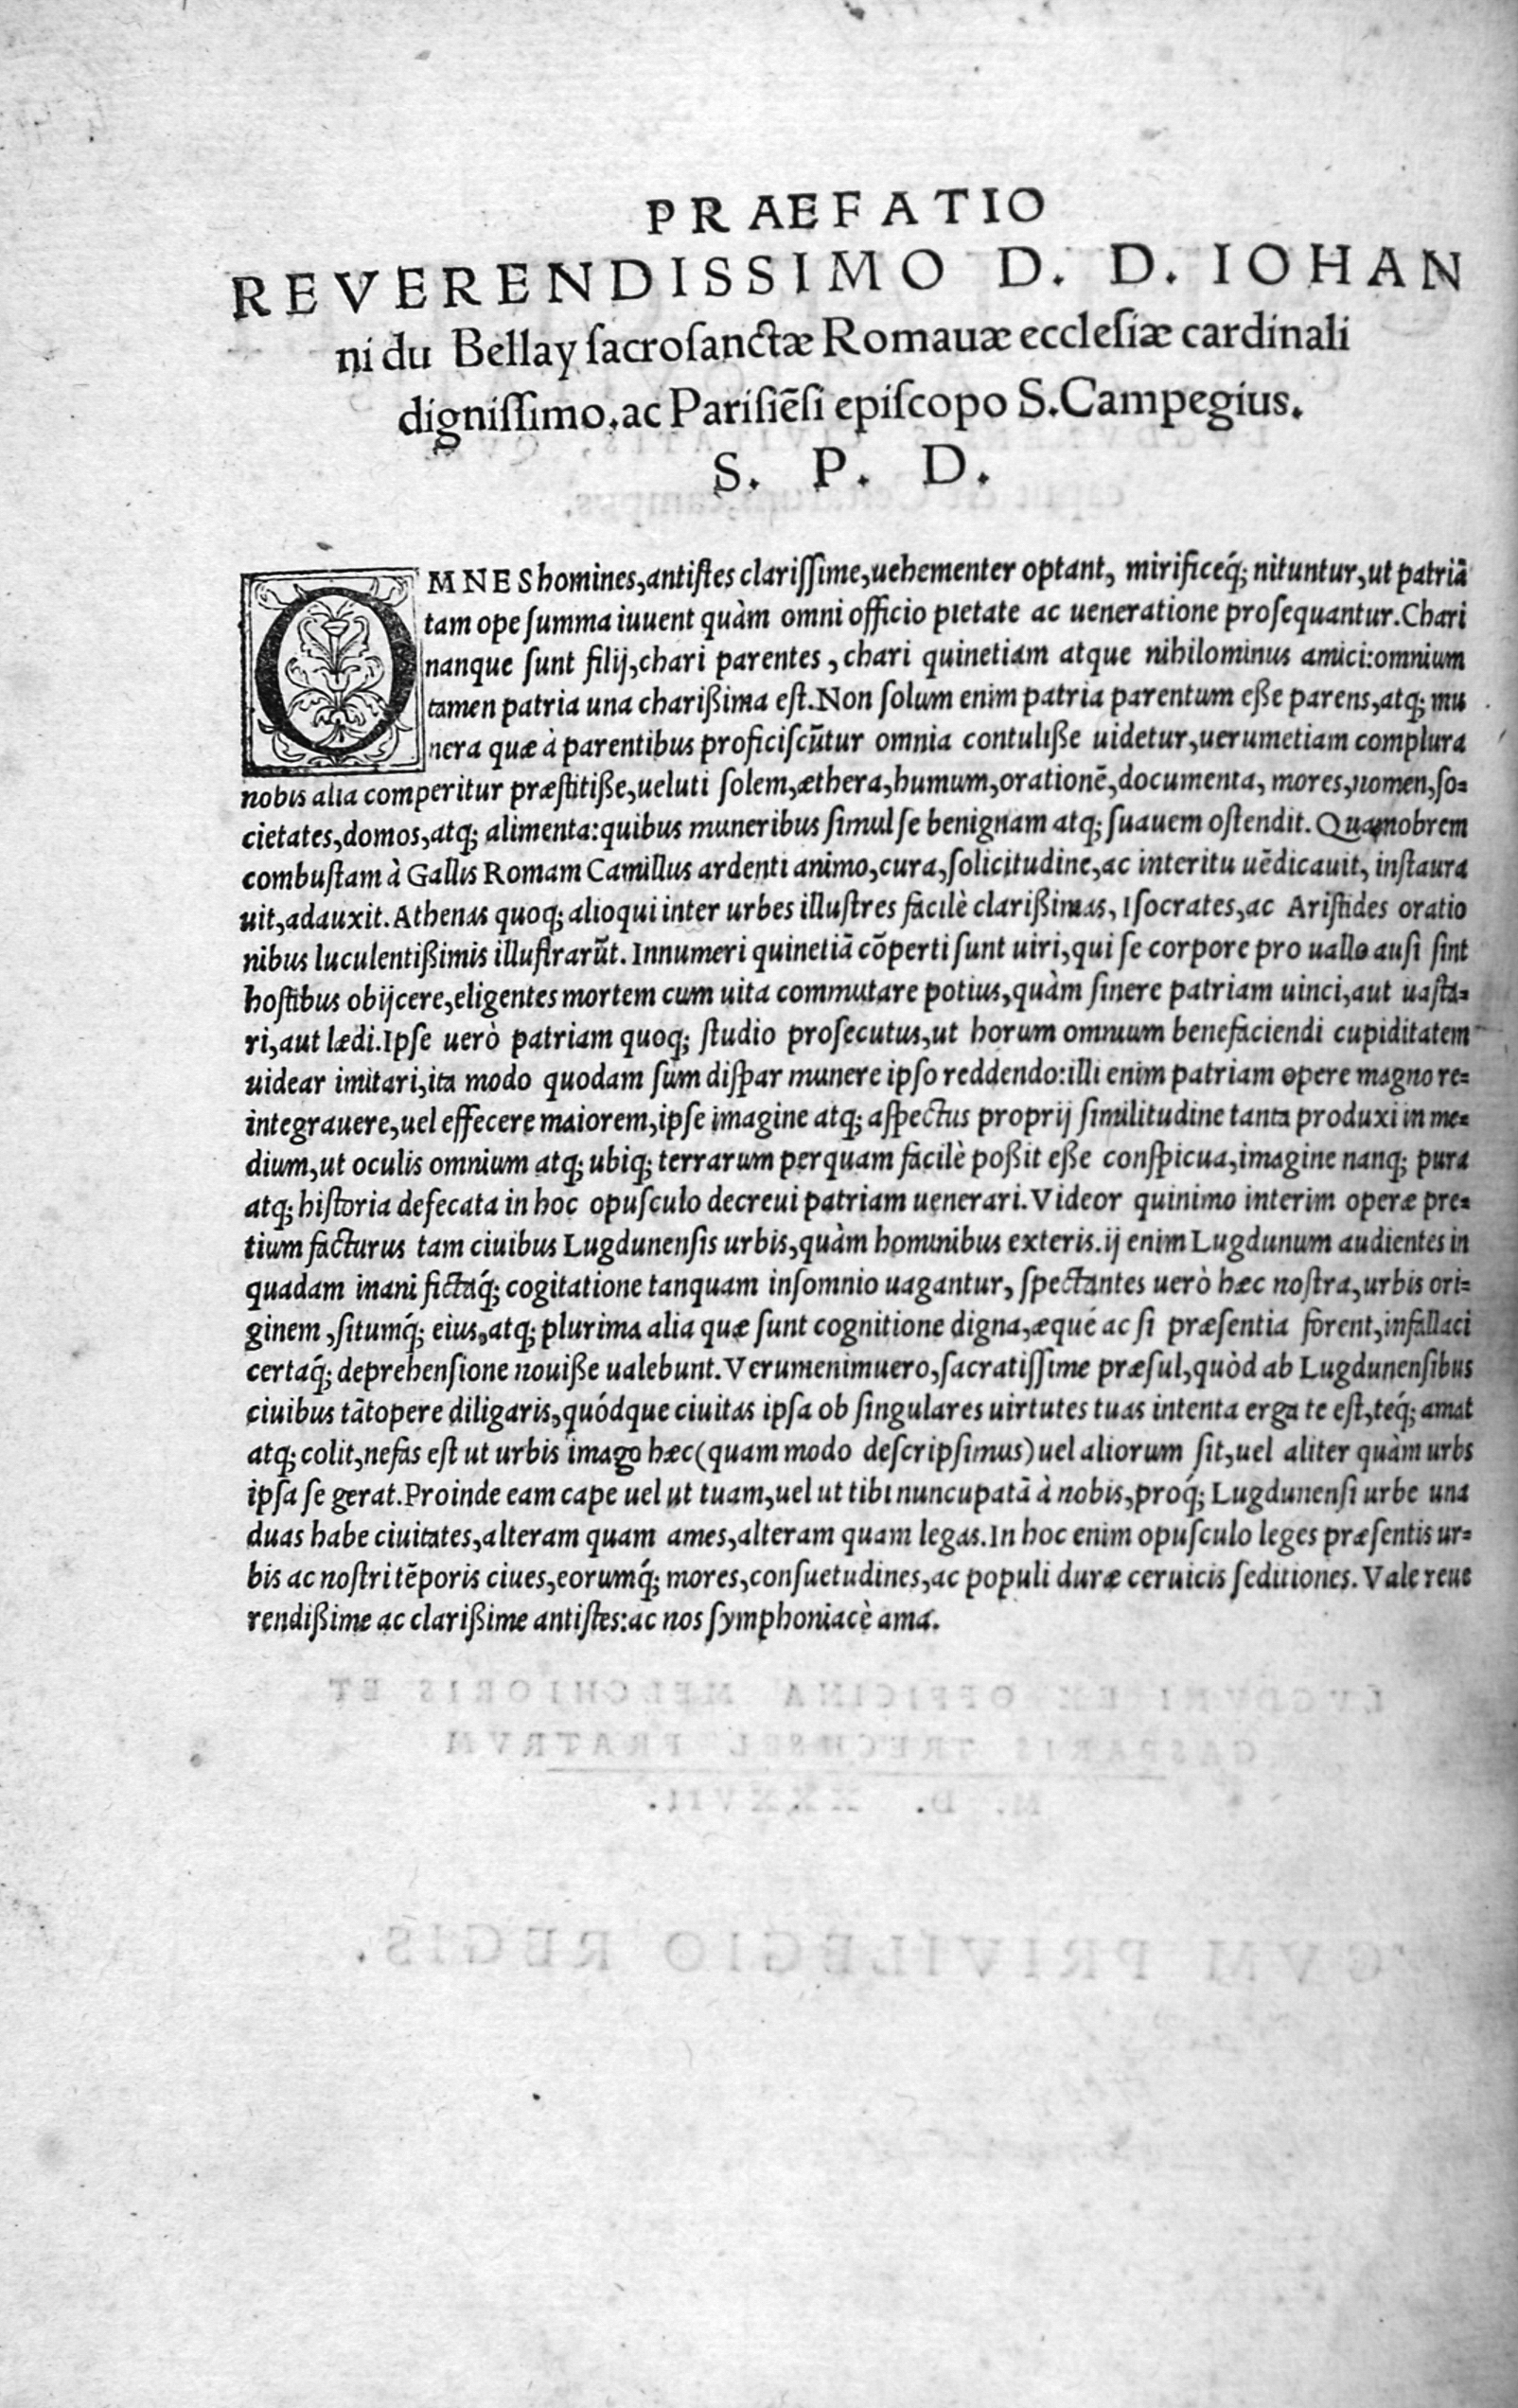 PRAEFATIO
REVERENDISSIMO D. D. IOHAN
ni du Bellay sacrosanctæ Romauæ ecclesiæ cardinali
dignissimo, ac Parisiēsi episcopo S. Campegius.
S. P. D.
OMNES homines, antistes clarissime, uehementer optant, mirificeq́; nituntur, ut patriā
tam ope summa iuuent quàm omni officio pietate ac ueneratione prosequantur. Chari
nanque sunt filij, chari parentes, chari quinetiam atque nihilominus amici: omnium
tamen patria una charißima est. Non solum enim patria parentum eße parens, atq; mu
nera quæ à parentibus proficiscūtur omnia contuliße uidetur, uerumetiam complura
nobis alia comperitur præstitiße, ueluti solem, æthera, humum, orationē, documenta, mores, nomen, so-
cietates, domos, atq; alimenta: quibus muneribus simul se benignam atq; suauem ostendit. Quamobrem
combustam à Gallis Romam Camillus ardenti animo, cura, solicitudine, ac interitu uēdicauit, instaura
uit, adauxit. Athenas quoq; alioqui inter urbes illustres facilè clarißimas, Isocrates, ac Aristides oratio
nibus luculentißimis illustrarūt. Innumeri quinetiā cōperti sunt uiri, qui se corpore pro uallo ausi sint
hostibus obijcere, eligentes mortem cum uita commutare potius, quàm sinere patriam uinci, aut uasta-
ri, aut lædi. Ipse uerò patriam quoq; studio prosecutus, ut horum omnium benefaciendi cupiditatem
uidear imitari, ita modo quodam sum dispar munere ipso reddendo: illi enim patriam opere magno re-
integrauere, uel effecere maiorem, ipse imagine atq; aspectus proprij similitudine tanta produxi in me-
dium, ut oculis omnium atq; ubiq; terrarum perquam facilè poßit eße conspicua, imagine nanq; pura
atq; historia defecata in hoc opusculo decreui patriam uenerari. Videor quinimo interim operæ pre-
tium facturus tam ciuibus Lugdunensis urbis, quàm hominibus exteris. ij enim Lugdunum audientes in
quadam inani fictaq́; cogitatione tanquam insomnio uagantur, spectantes uerò hæc nostra, urbis ori-
ginem, situmq́; eius, atq; plurima alia quæ sunt cognitione digna, æqué ac si præsentia forent, infallaci
certaq́; deprehensione nouiße ualebunt. Verumenimuero, sacratissime præsul, quòd ab Lugdunensibus
ciuibus tātopere diligaris, quódque ciuitas ipsa ob singulares uirtutes tuas intenta erga te est, téq́; amat
atq; colit, nefas est ut urbis imago hæc (quam modo descripsimus) uel aliorum sit, uel aliter quàm urbs
ipsa se gerat. Proinde eam cape uel ut tuam, uel ut tibi nuncupatā à nobis, proq́; Lugdunensi urbe una
duas habe ciuitates, alteram quam ames, alteram quam legas. In hoc enim opusculo leges præsentis ur-
bis ac nostri tēporis ciues, eorumq́; mores, consuetudines, ac populi duræ ceruicis seditiones. Vale reue
rendißime ac clarißime antistes: ac nos symphoniacè ama.